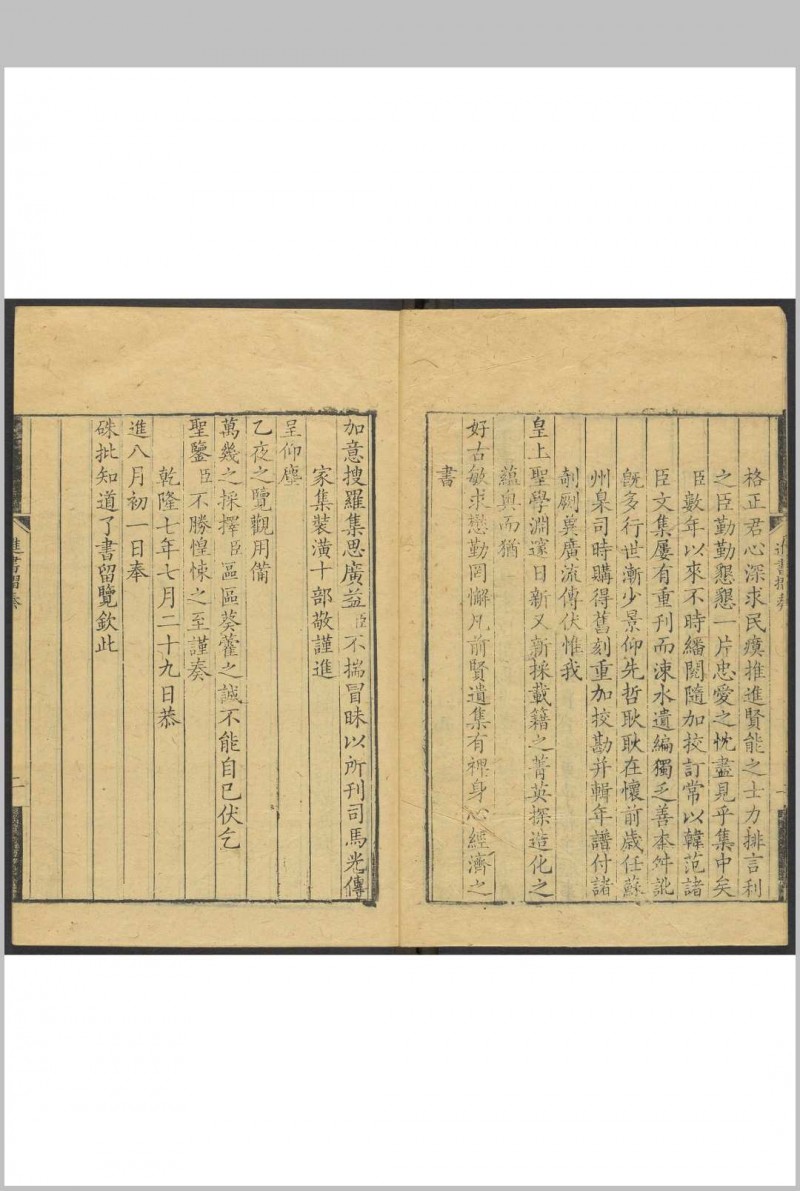 格正君心深求民瘼推進賢能之士力排言利
之臣勤勤懇懇一片忠愛之忱盡見乎集中矣
臣數年以來不時繙閱隨加挍訂常以韓范諸
臣文集屢有重刊而涑水遺編獨乏善本舛訛
旣多行世漸少景仰先哲耿耿在懷前歲任蘇
州臬司時購得舊刻重加挍勘并輯年譜付諸
剞劂冀廣流傳伏惟我
皇上聖學淵邃日新又新採載籍之菁英探造化之
蘊奧而猶
好古敏求懋勤罔懈凡前賢遺集有裨身心經濟之
書
進書摺奏
加意搜羅集思廣益臣不揣冒昧以所刊司馬光傳
家集裝潢十部敬謹進
呈仰塵
乙夜之覽觀用備
萬幾之採擇臣區區葵藿之誠不能自已伏乞
聖鑒臣不勝惶悚之至謹奏
乾隆七年七月二十九日恭
進八月初一日奉
硃批知道了書留覽欽此
進書摺奏
二